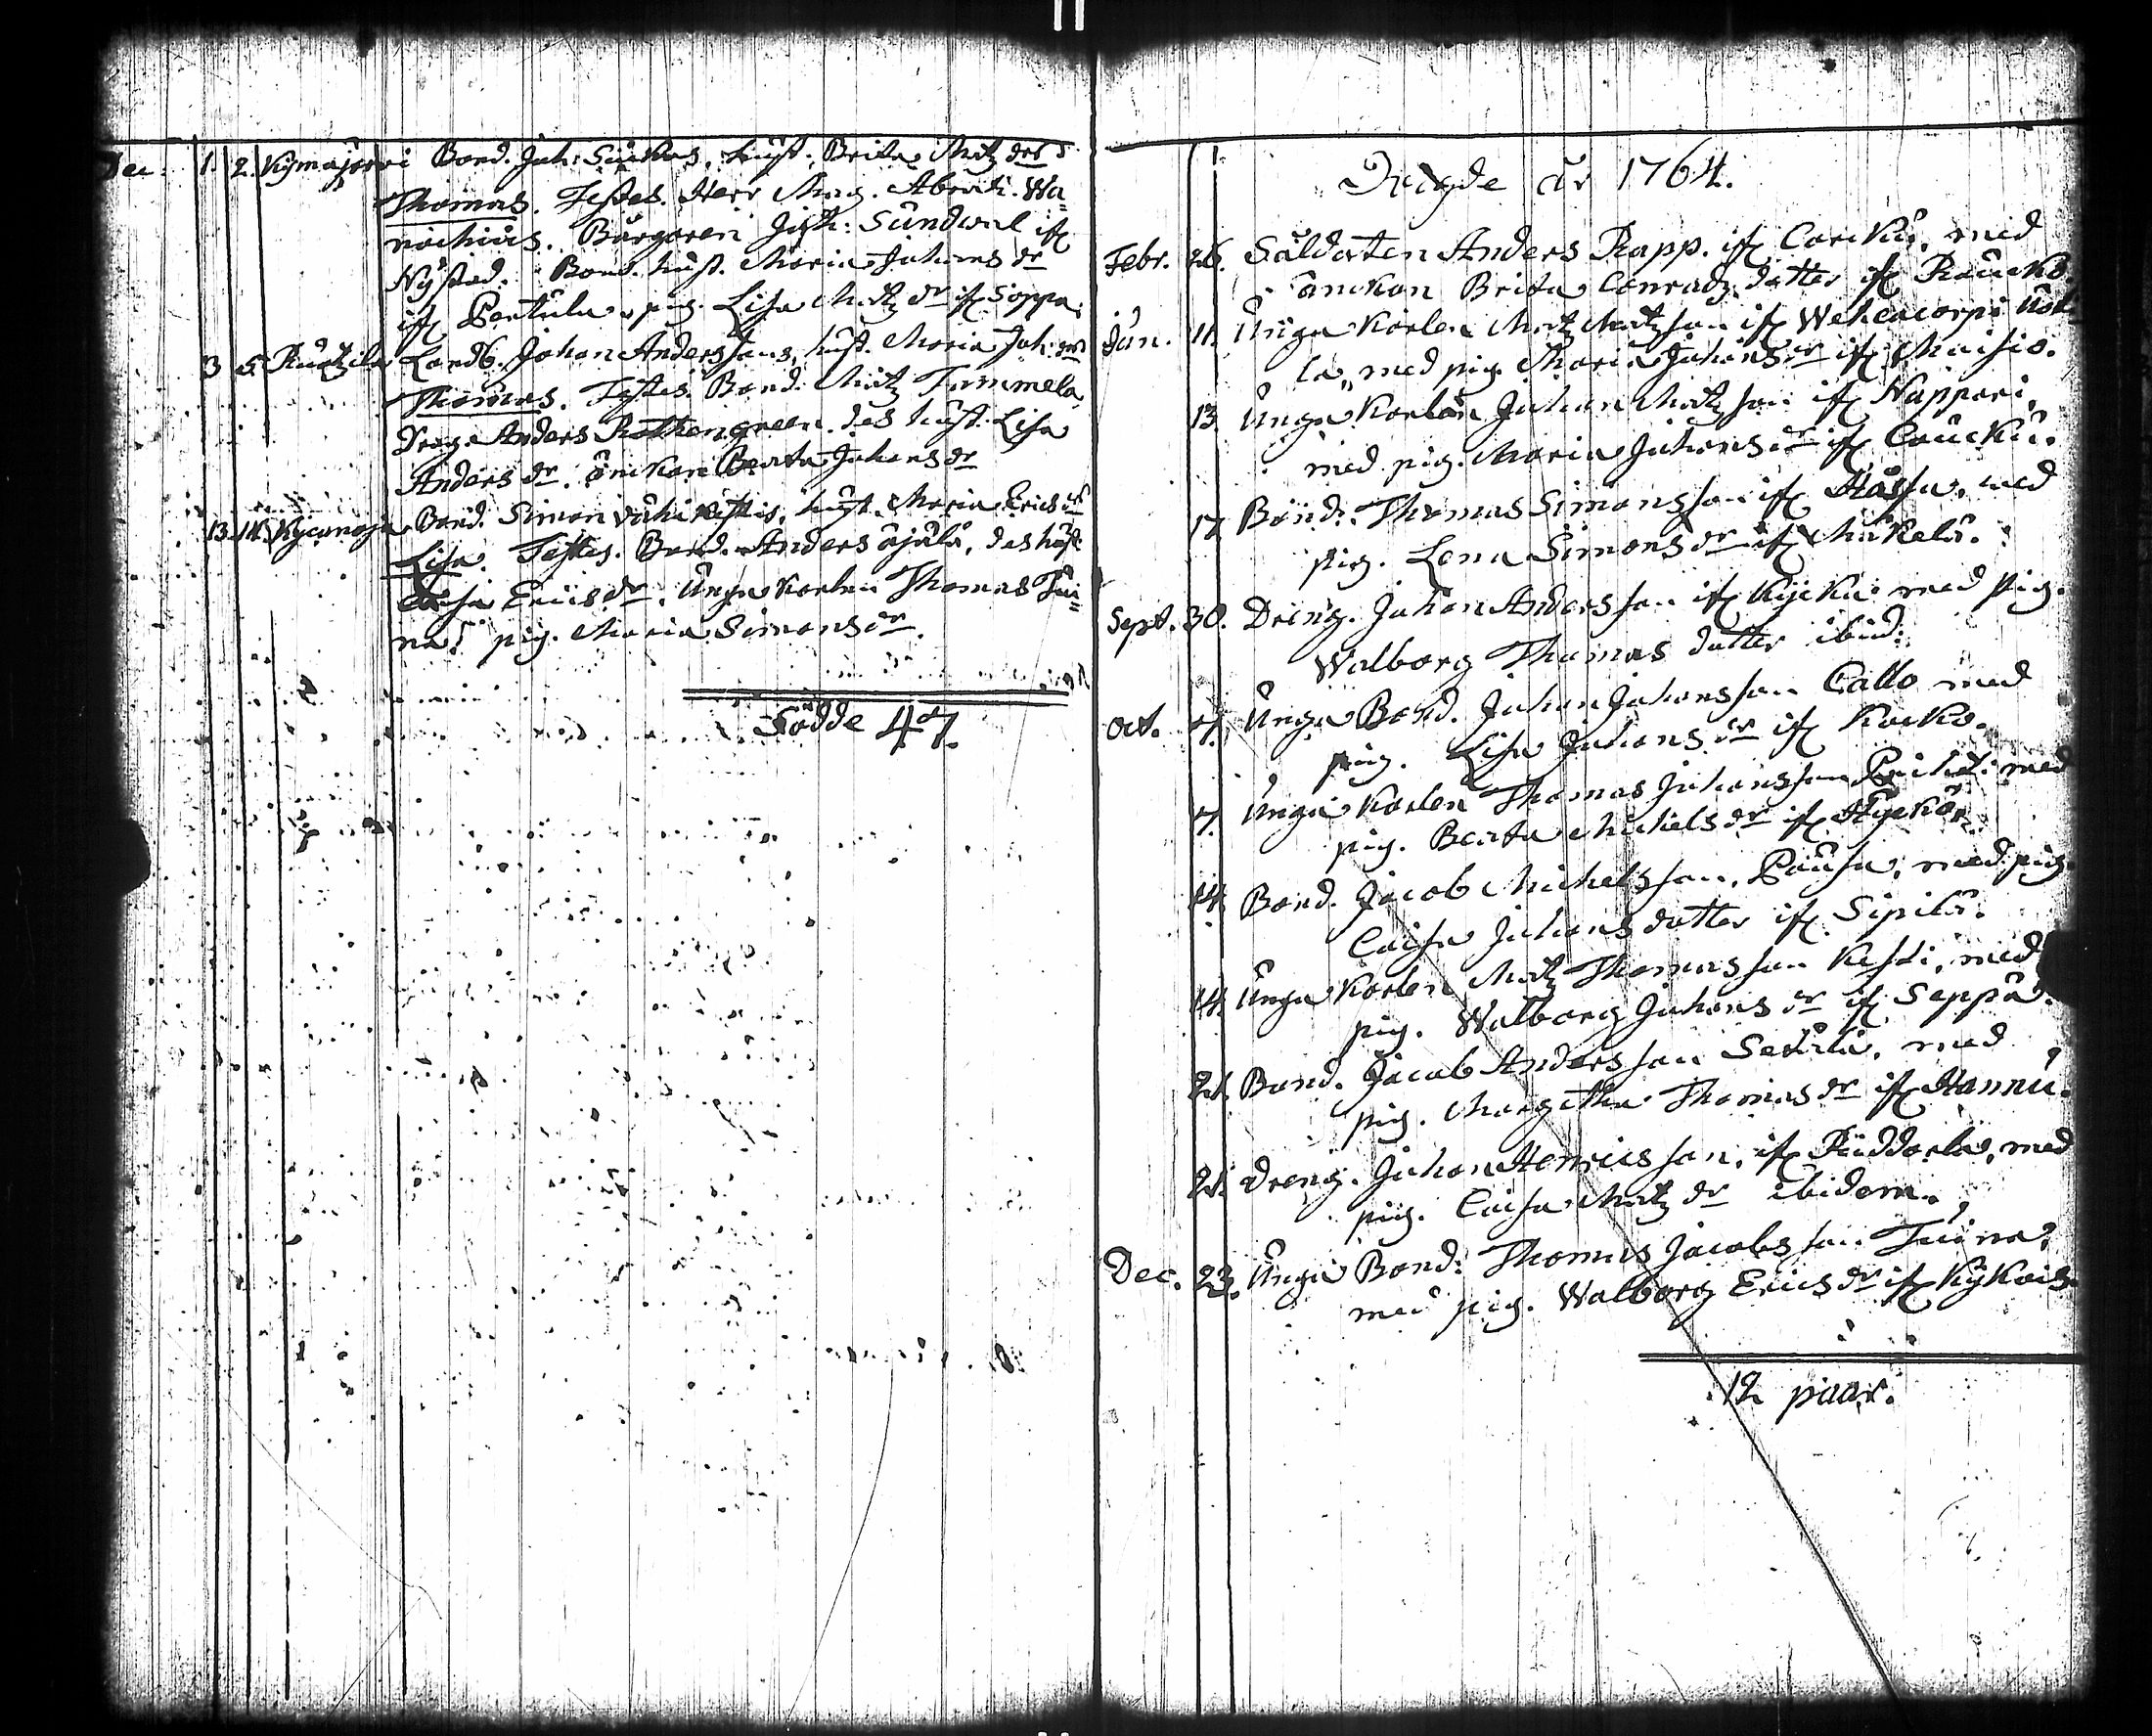 Dec. 1. 2. Kymajärvi Bond. Joh: Hust. Brita Matz dr s
Thomas. Testes. Herr Mag. Abrah. Wa=
nochius. Borgaren Joh: Sundwal ifr.
Nystad. Bond. hust. Maria Johans dr
ifr. Pertula, pig. Lisa Matz dr ifr. Soppa.
3 5. Landb. Johan Anderssons, hust. Maria Joh: drs
Thomas. Testes. Bond. Matz Tommela,
Dreng. Anders Rothengreen. des hust. Lisa
Anders dr. änkan Beata Johans dr
13. 14. Kycanoja Bond. Simon hust. Maria Erics drs
Lisa. Testes. Bond. Anders äjälä, des hust.
Caisa Erics dr. Unga Karlen Thomas Tui=
na. pig. Maria Simons dr.
Födde 47.
Wigde år 1764.
Febr. 26. Såldaten Anders Rapp. ifr. med
änckan Brita Conradz dotter ifr.
Jan. 11. Unga Karlen Matz Matzson ifr.
la, med pig. Maria Johans dr ifr. Maisio.
13 Unga Karlen Johan Matzson ifr. Nappari,
med pig. Maria Johans dr ifr. Caucku.
17 Bond. Thomas Simonsson ifr. Hassa, med
pig. Lena Simons dr ifr. Mickelä.
Sept. 30. Dreng. Johan Andersson ifr. med pig.
Walborg Thomas dotter ibid:
Oct. 7. Unga Bond. Johan Johansson Callo med
pig. Lisa Johans dr ifr. Korko.
7. Unga Karlen Thomas Johansson med
pig. Beata Michels dr ifr.
14. Bond. Jacob Michelsson, Pausa, med pig.
Caisa Johans dotter ifr. Sipilä.
14. Unga Karlen Matz Thomasson Kesti, med
pig. Walborg Johans dr ifr. Seppä.
21. Bond. Jacob Andersson med
pig. Margetha Thomas dr ifr. Hannu.
21. Dreng. Johan Henricsson, ifr. med
pig. Caisa Matz dr ibidem.
Dec. 23. Unga Bond: Thomas Jacobsson Tuina,
med pig. Walborg Erics dr ifr.
12 paar.